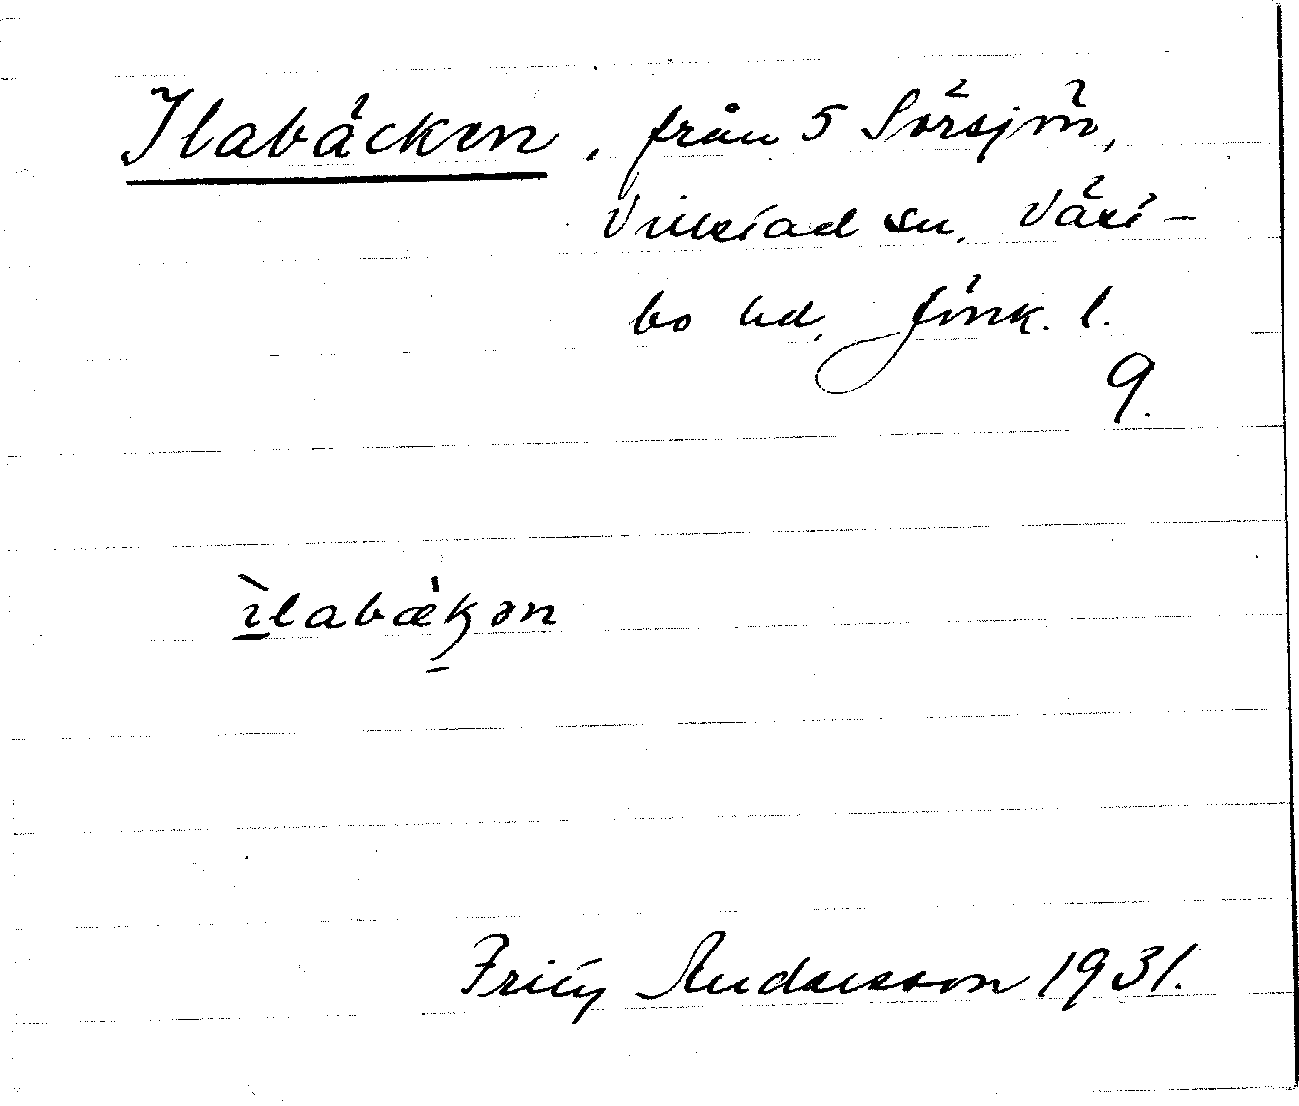 Ilabäcken, från 5 Sörsjön,
Villstad sn, Väst-
bo hd, Jönk. l.
9.
ìlabæ̀ʞən
Frity Andersson 1931.